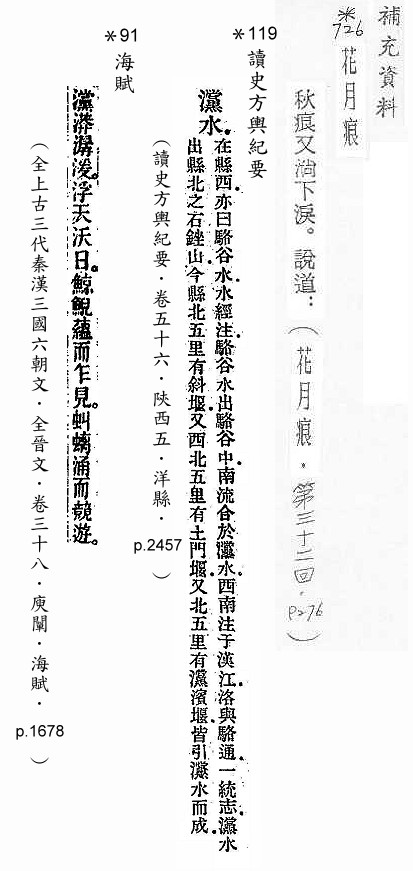 補充資料
*726 花月痕
秋痕又淌下淚。說道：（花月痕．第三十二回．P276）
*119 讀史方輿紀要
灙水。在縣西亦曰駱谷水水經注駱谷水出駱谷中南流合於灙水西南注于漢江洛與駱通一統志灙水
出縣北之石銼山今縣北五里有斜堰又西北五里有土門堰又北五里有灙濱堰皆引灙水而成
（讀史方輿紀要．卷五十六．陝西五．洋縣．p.2457）
*91 海賦
灙漭浮天沃日。鯨鯢蘊而乍見。虯螭涌而競遊。
（全上古三代秦漢三國六朝文．全晉文．卷三十八．庾闡．海賦．p.1678）